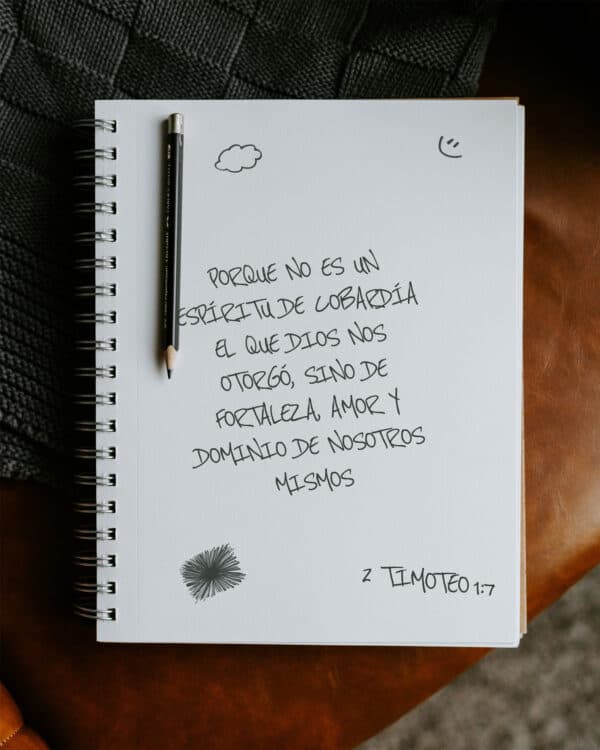 PORQUE NO ES UN
ESPÍRITU DE COBARDÍA
EL QUE DIOS NOS
OTORGÓ, SINO DE
FORTALEZA, AMOR Y
DOMINIO DE NOSOTROS
MISMOS
2 TIMOTEO 1:7